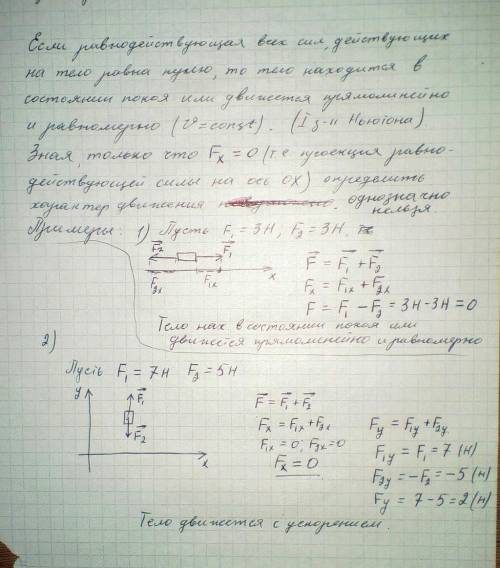 Если равнодействующая всех сил, действующих
на тело равна нулю, то тело находится в
состоянии покоя или движется прямолинейно
и равномерно (υ = const). (I з-н Ньютона)
Зная, только что Fx = 0 (т.е проекция равно-
действующей силы на ось OX) определить
характер движения однозначно
нельзя.
Примеры: 1) Пусть F₁ = 3Н, F₂ = 3Н.
F₂ F₁
F₂x F₁x x
F = F₁ + F₂
Fx = F₁x + F₂x
F = F₁ − F₂ = 3Н − 3Н = 0
Тело нах в состоянии покоя или
движется прямолинейно и равномерно
2)
Пусть F₁ = 7Н F₂ = 5Н
y
F₁
F₂
x
F = F₁ + F₂
Fx = F₁x + F₂x
F₁x = 0; F₂x = 0
Fx = 0
Fy = F₁y + F₂y
F₁y = F₁ = 7 (Н)
F₂y = −F₂ = −5 (Н)
Fy = 7 − 5 = 2 (Н)
Тело движется с ускорением.